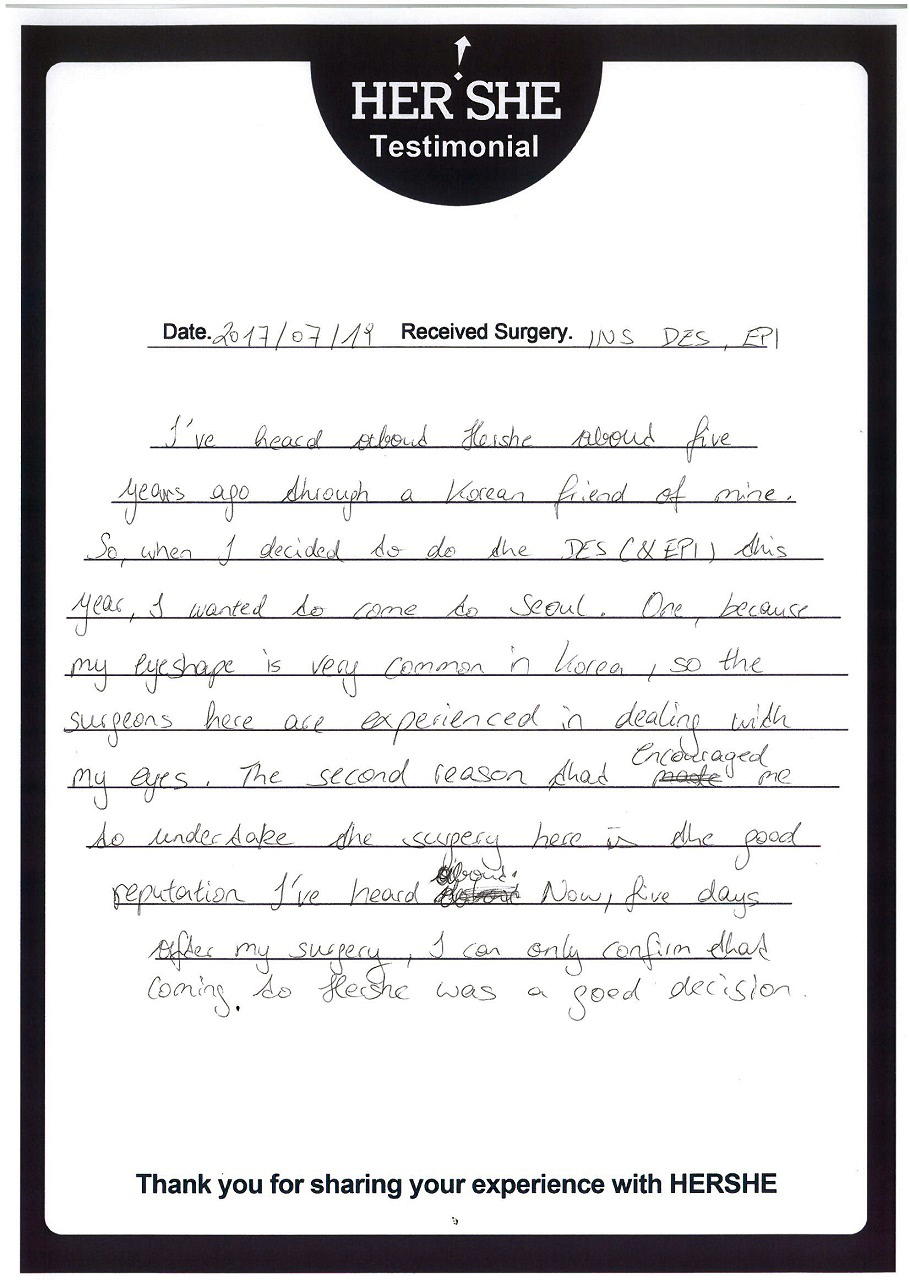 HER SHE
Testimonial
Date. 2017/07/19 Received Surgery. INS DES, EPI
I've heard about Hershe about five
years ago through a Korean friend of mine.
So, when I decided to do the DES (& EPI) this
year, I wanted to come to Seoul. One, because
my eyeshape is very common in Korea, so the
surgeons here are experienced in dealing with
my eyes. The second reason that encouraged me
to undertake the surgery here is the good
reputation I've heard about. Now, five days
after my surgery, I can only confirm that
coming to Hershe was a good decision.
Thank you for sharing your experience with HERSHE